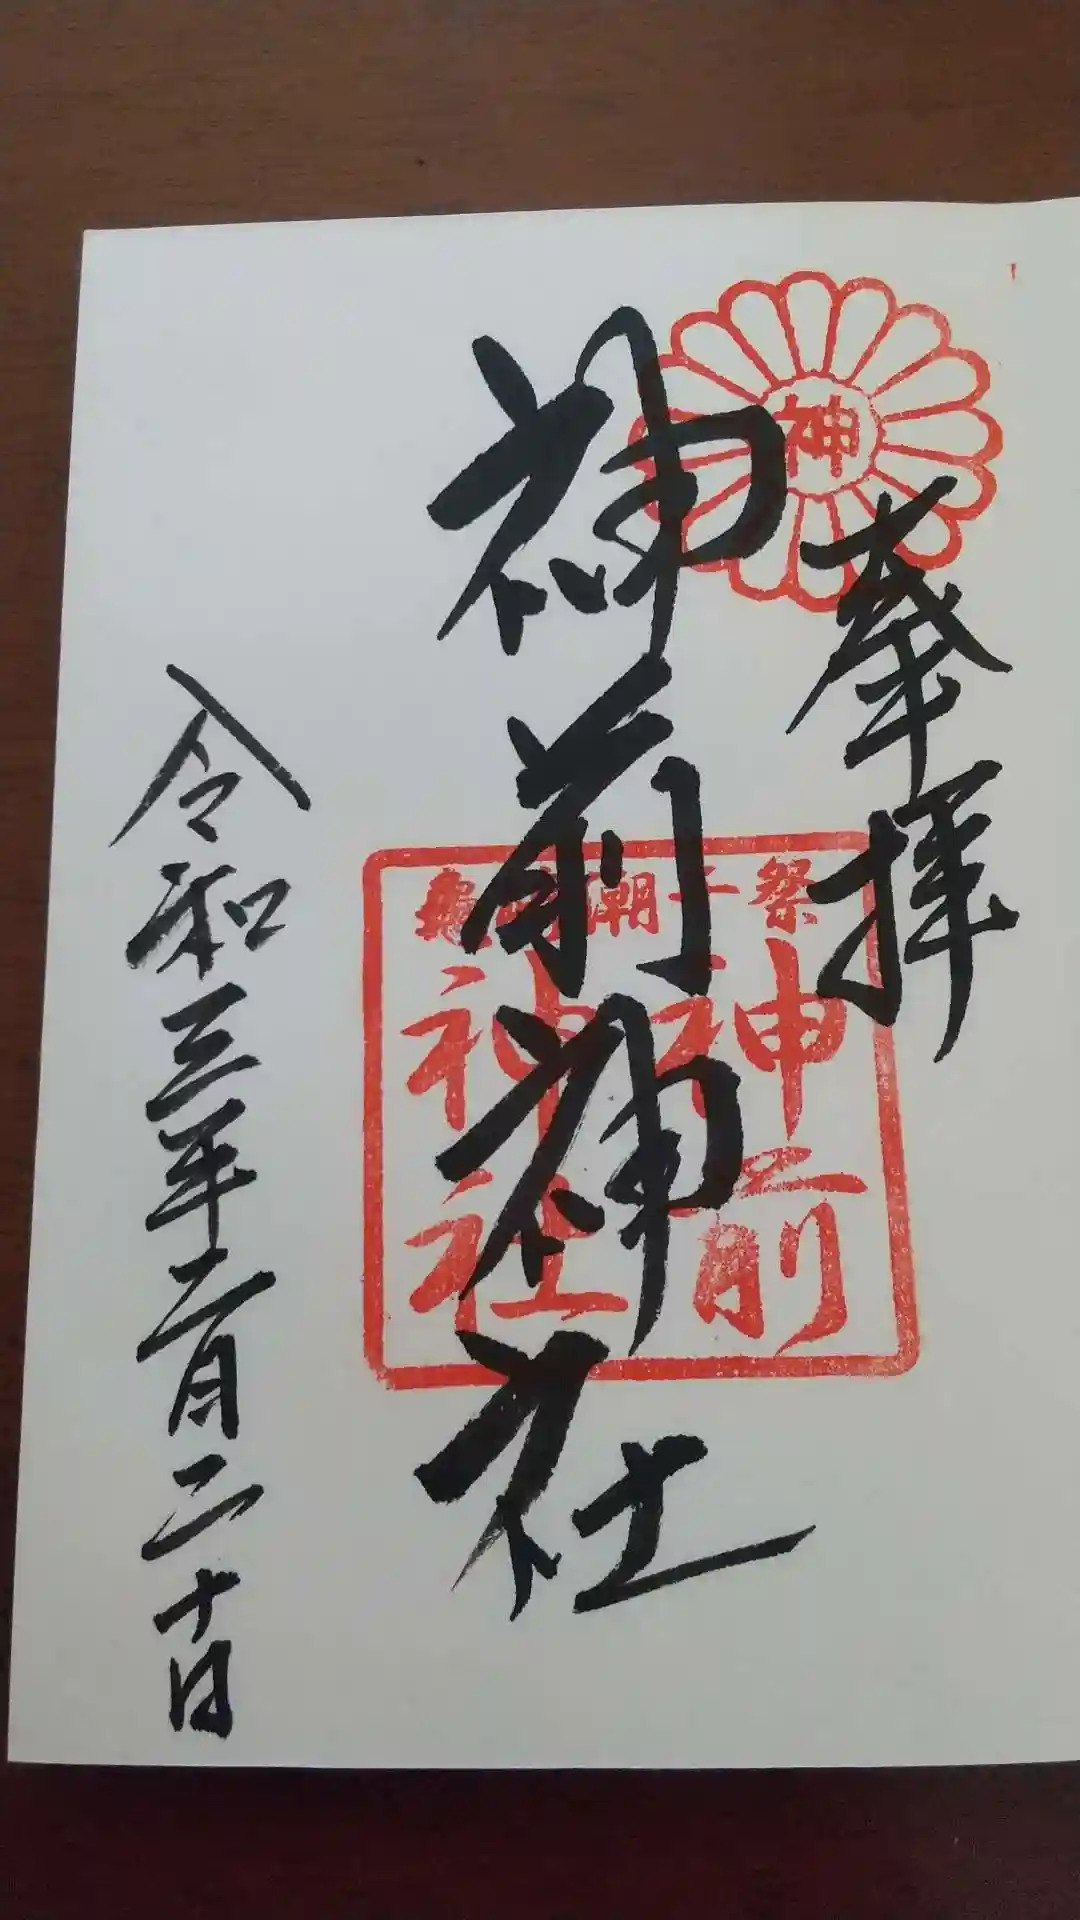 神
奉拝
龜崎潮干祭
神前
神社
神前神社
令和三年二月二十日